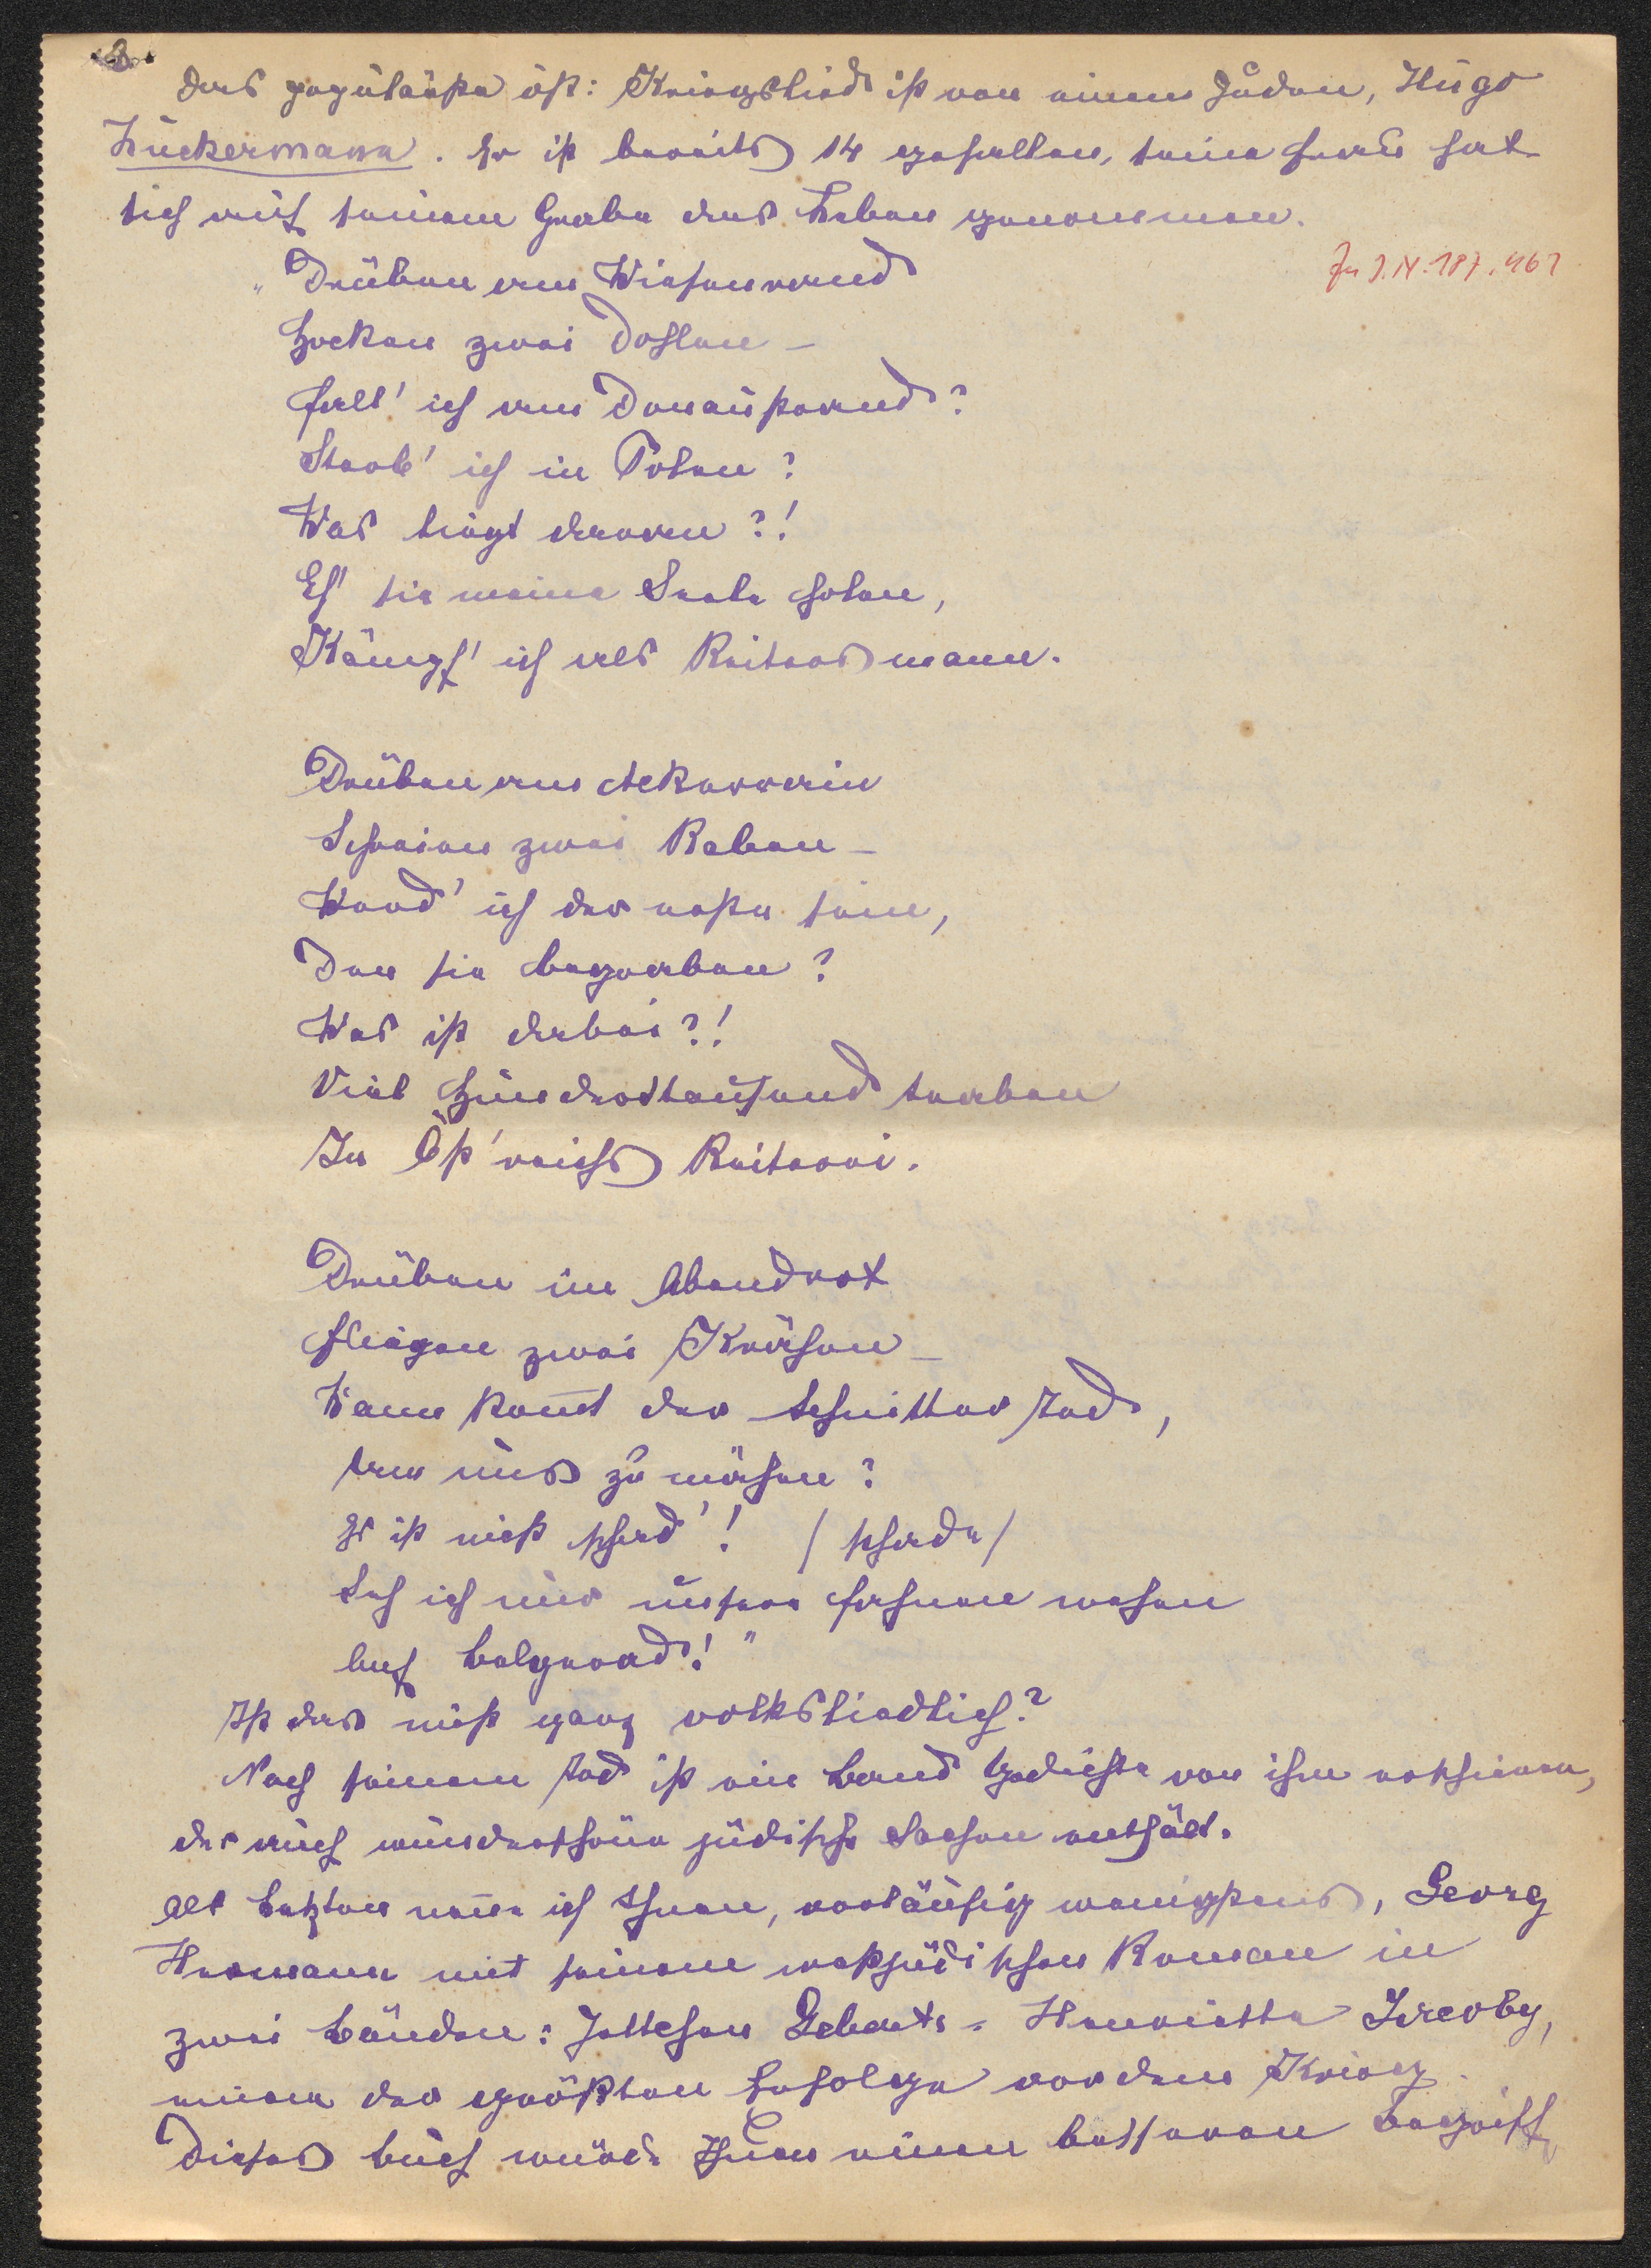 3.
Das populärste öst: Kriegslied ist von einem Juden, Hugo
Zuckermann. Er ist bereits 14 gefallen, seine Frau hat
sich auf seinem Grabe das Leben genommen.
Zu J.N. 187.461
"Drüben am Wiesenrand
Hocken zwei Dohlen –
Fall' ich am Donaustrand?
Sterb' ich in Polen?
Was liegt daran?!
Eh' sie meine Seele holen,
Kämpf' ich als Reitersmann.
Drüben am Ackerrain
Schreien zwei Raben –
Werd' ich der erste sein,
Den sie begraben?
Was ist dabei?!
Viel Hunderttausend traben
In Öst'reichs Reiterei.
Drüben im Abendrot
Fliegen zwei Krähen –
Wann kom̅t der Schnitter Tod,
Um uns zu mähen?
Es ist nicht schad'! /schade/
Seh ich nur unsere Fahnen wehen
Auf Belgerad!"
Ist das nicht ganz volksliedlich?
Nach seinem Tod ist ein Band Gedichte von ihm erschienen,
der auch wunderschöne jüdische Sachen enthält.
Als Letzten nen̅e ich Ihnen, vorläufig wenigstens, Georg
Hermann mit seinem westjüdischen Roman in
zwei Bänden: Jettchen Gebert - Henriette Jacoby,
einen der größten Erfolge vor dem Krieg.
Dieses Buch würde Ihnen einen besseren Begriff